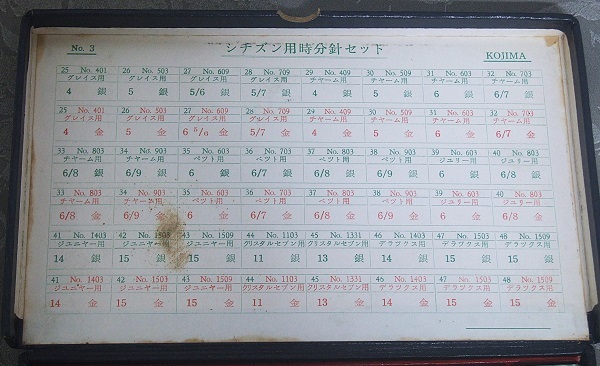 No. 3 シチズン用時分針セット KOJIMA
25 No. 401 26 No. 503 27 No. 609 28 No. 709 29 No. 409 30 No. 509 31 No. 603 32 No. 703
グレイス用 グレイス用 グレイス用 グレイス用 チャーム用 チャーム用 チャーム用 チャーム用
4 銀 5 銀 5/6 銀 5/7 銀 4 銀 5 銀 6 銀 6/7 銀
25 No. 401 26 No. 503 27 No. 609 28 No. 709 29 No. 409 30 No. 509 31 No. 603 32 No. 703
グレイス用 グレイス用 グレイス用 グレイス用 チャーム用 チャーム用 チャーム用 チャーム用
4 金 5 金 6 金 5/7 金 4 金 5 金 6 金 6/7 金
33 No. 803 34 No. 903 35 No. 603 36 No. 703 37 No. 803 38 No. 903 39 No. 603 40 No. 803
チャーム用 チャーム用 ペット用 ペット用 ペット用 ペット用 ジュリー用 ジュリー用
6/8 銀 6/9 銀 6 銀 6/7 銀 6/8 銀 6/9 銀 6 銀 6/8 銀
33 No. 803 34 No. 903 35 No. 603 36 No. 703 37 No. 803 38 No. 903 39 No. 603 40 No. 803
チャーム用 チャーム用 ペット用 ペット用 ペット用 ペット用 ジュリー用 ジュリー用
6/8 金 6/9 金 6 金 6/7 金 6/8 金 6/9 金 6 金 6/8 金
41 No. 1403 42 No. 1503 43 No. 1509 44 No. 1103 45 No. 1331 46 No. 1403 47 No. 1503 48 No. 1509
ジユニヤー用 ジユニヤー用 ジユニヤー用 クリスタルセブン用 クリスタルセブン用 デラックス用 デラックス用 デラックス用
14 銀 15 銀 15 銀 11 銀 13 銀 14 銀 15 銀 15 銀
41 No. 1403 42 No. 1503 43 No. 1509 44 No. 1103 45 No. 1331 46 No. 1403 47 No. 1503 48 No. 1509
ジユニヤー用 ジユニヤー用 ジユニヤー用 クリスタルセブン用 クリスタルセブン用 デラックス用 デラックス用 デラックス用
14 金 15 金 15 金 11 金 13 金 14 金 15 金 15 金